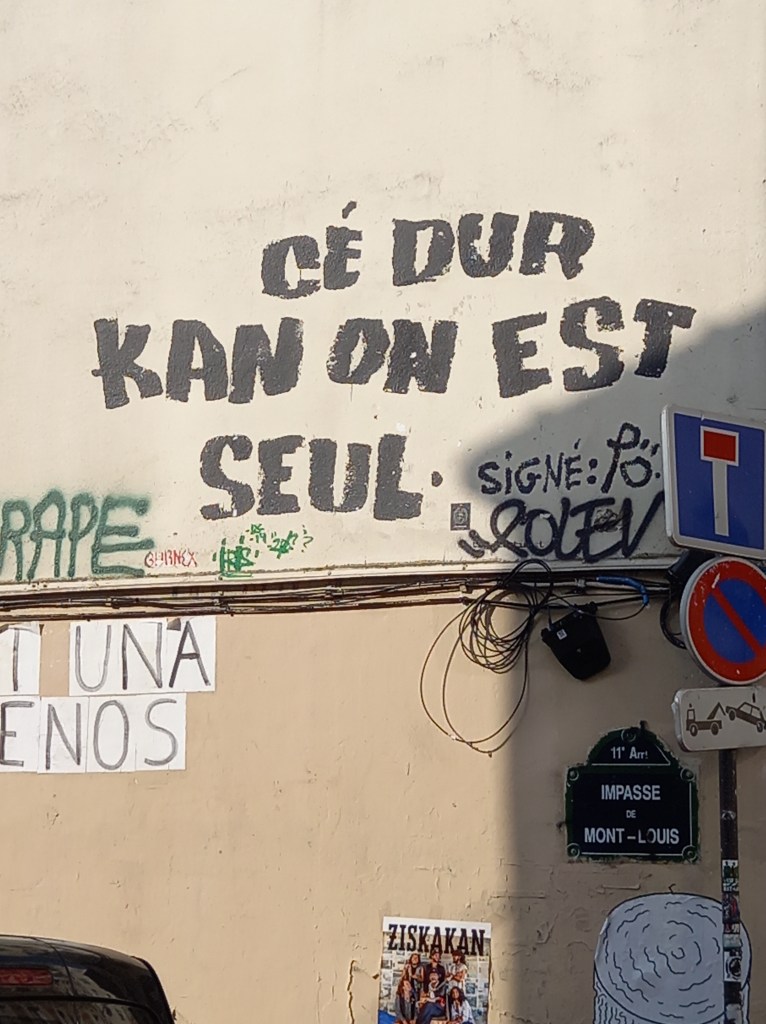 CÉ DUR
KAN ON EST
SEUL.
SIGNÉ: PÖ.
RAPE
UNA
ENOS
11e Arrt
IMPASSE
DE
MONT-LOUIS
ZISKAKAN